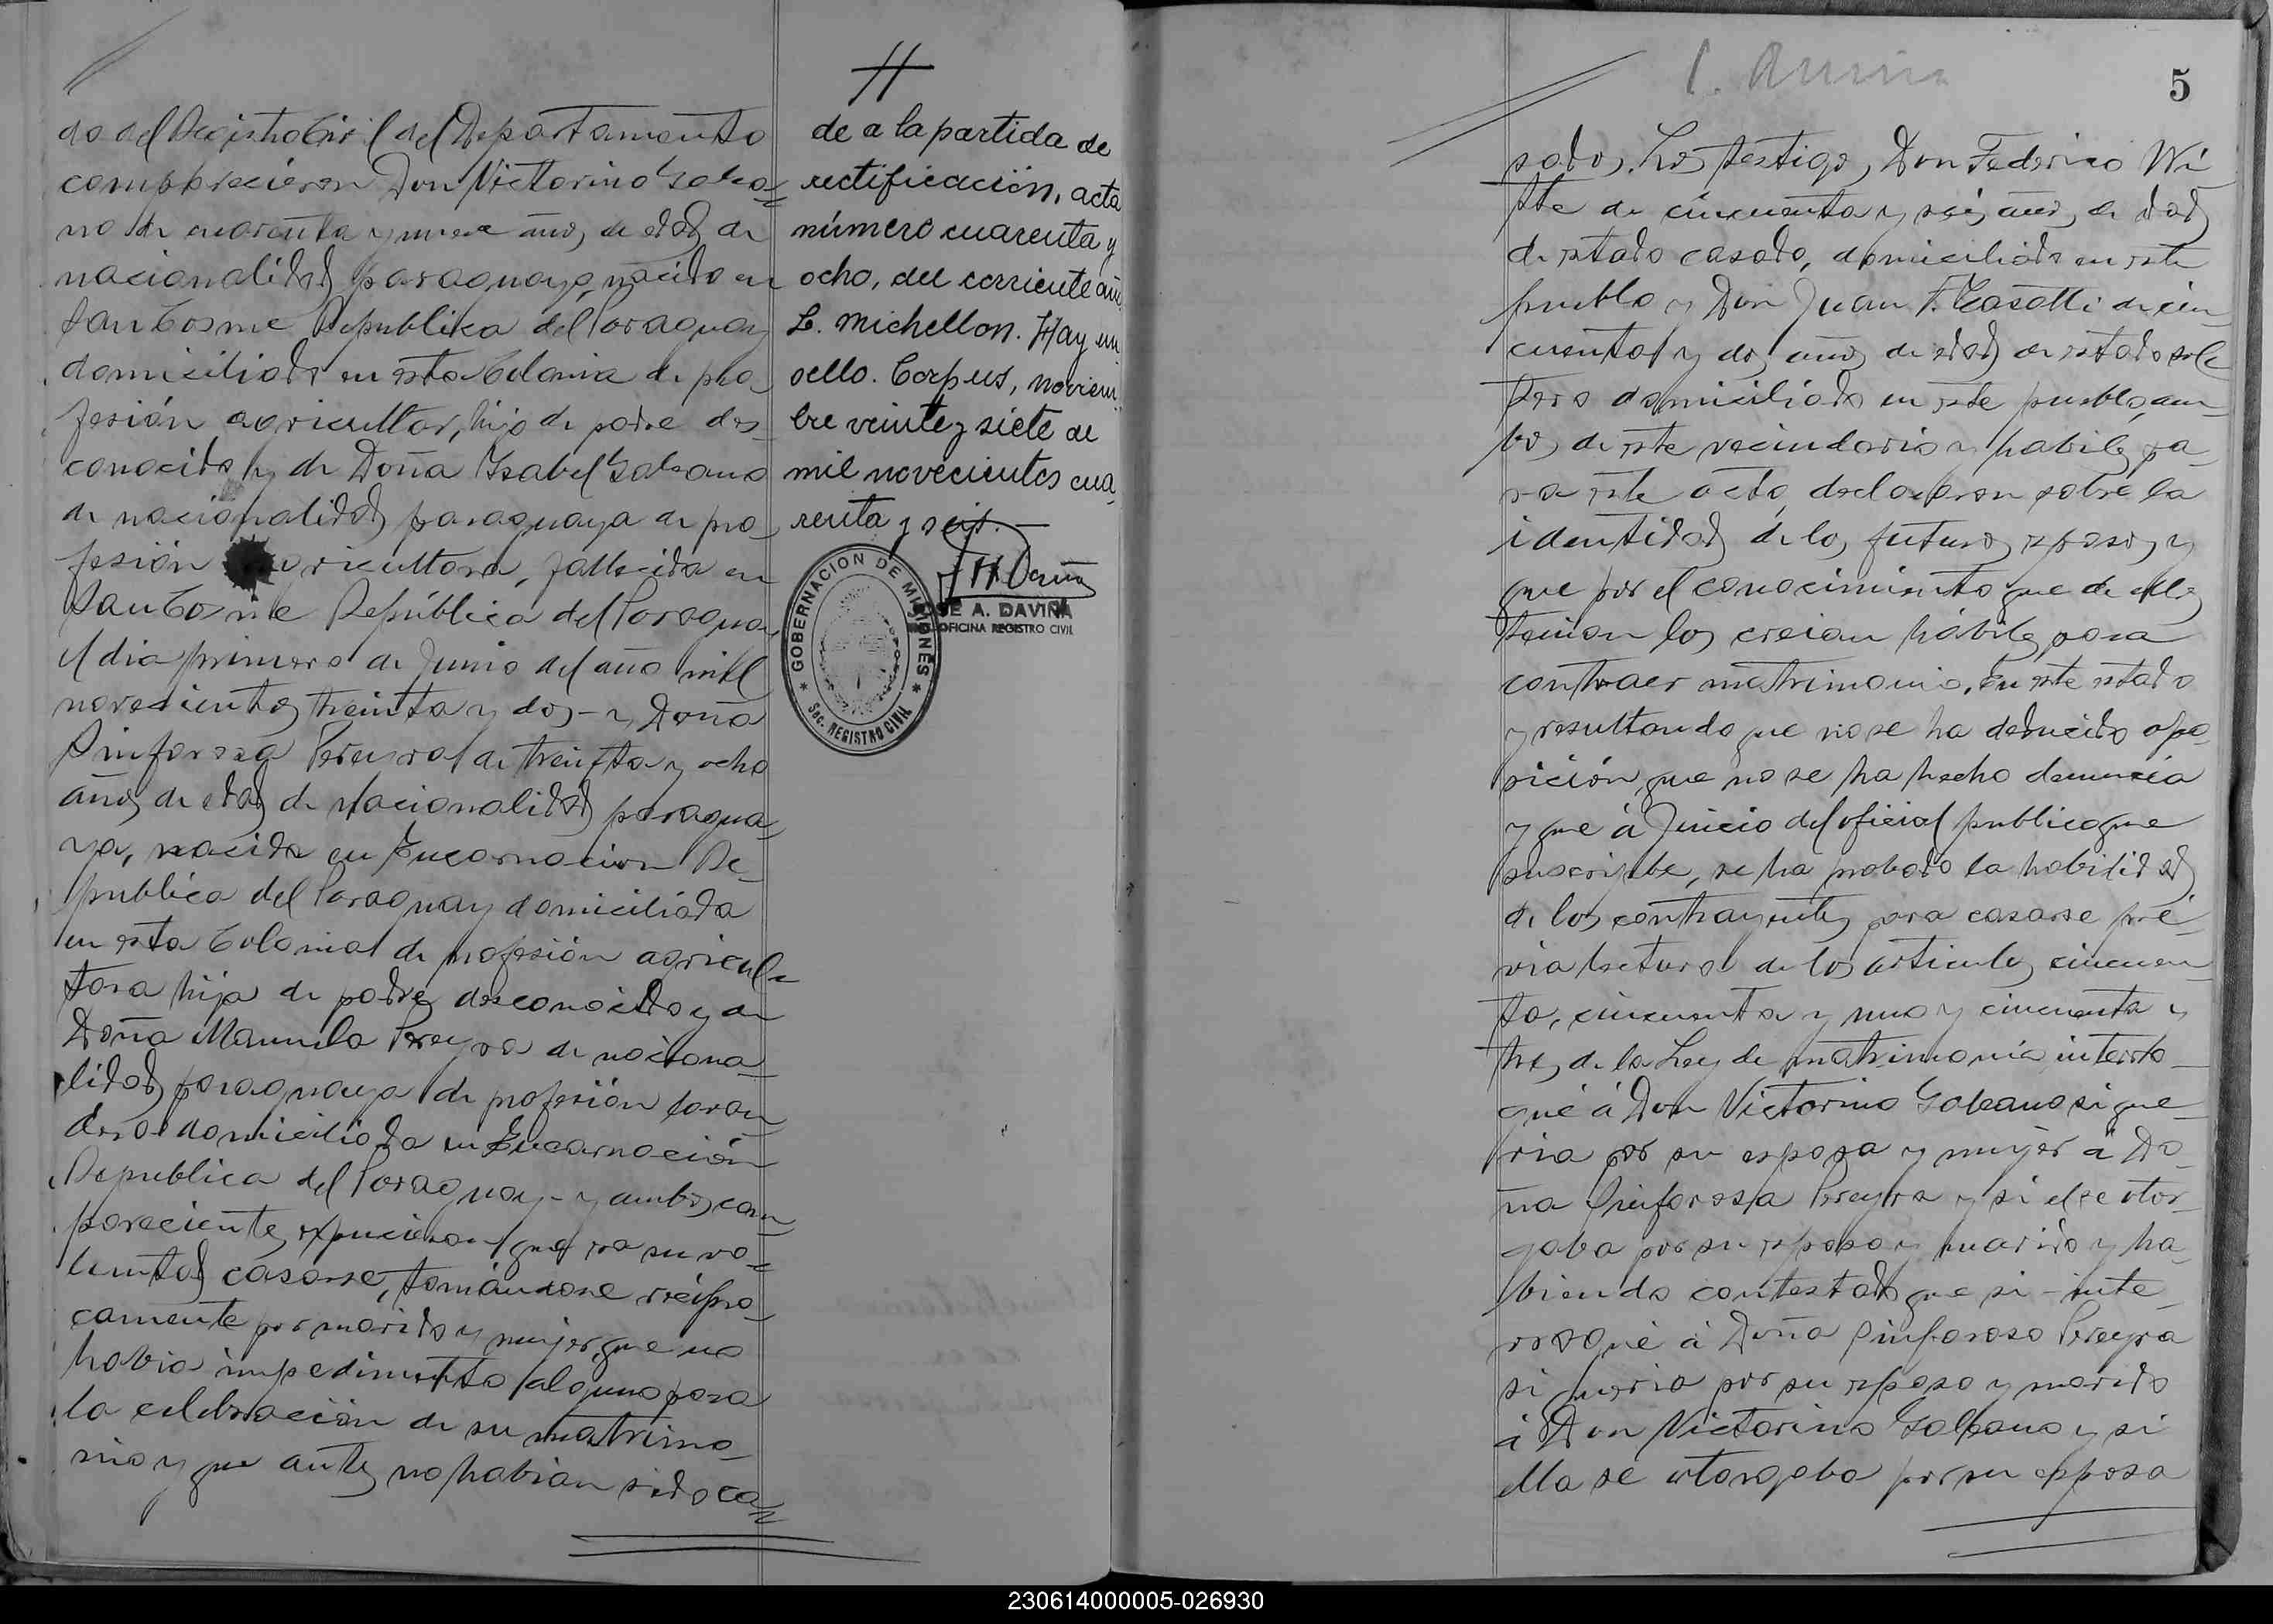 do del Registro Civil del Departamento
comparecieron Don Victorino Galea=
no de cuarenta y nueve años de edad de
nacionalidad paraguayo, nacido en
San Cosme Republica del Paraguay
domiciliado en esta Colonia de pro-
fesión agricultor, hijo de padre des-
conocido y de Doña Ysabel Galeano
de nacionalidad paraguaya de pro-
fesión agricultora, fallecida en
San Cosme República del Paraguay
el dia primero de Junio del año mil
novecientos treinta y dos - y Doña
Sinforosa Pereyra de treinta y ocho
años de edad de Nacionalidad paragua-
ya, nacida en Encarnacion Re-
publica del Paraguay domiciliada
en esta Colonia de profesión agricul=
tora hija de padre desconocido y de
Doña Manuela Pereyra de naciona-
lidad paraguaya de profesión
domiciliada en Encarnación
Republica del Paraguay - y ambos com-
parecientes expusieron que era su vo=
luntad casarse, tomándose recípro-
camente por marido y mujer, que no
habia impedimento alguno para
la celebración de su matrimo-
nio y que antes no habian sido ca=
#
de a la partida de
rectificación, acta
número cuarenta y
ocho, del corriente año
L. Michellon. Hay un
sello. Corpus, noviem
bre veinte y siete de
mil novecientos cua-
renta y seis.—
JOSE A. DAVIÑA
OFICINA REGISTRO CIVIL
* GOBERNACION DE MISIONES *
Sec. REGISTRO CIVIL
5
sados. Los testigos, Don Federico Wi
tte de cincuenta y seis años de edad
de estado casado, domiciliado en este
pueblo y Don Juan F. Casotti de cin-
cuenta y dos años de edad de estado sol-
tero domiciliado en este pueblo, am-
bos de este vecindario y habiles pa-
ra este acto, declararon sobre la
identidad de los futuros esposos y
que por el conocimiento que de ellos
tenian los creian hábiles para
contraer matrimonio. En este estado
y resultando que no se ha deducido opo-
sición, que no se ha hecho denuncia
y que á Juicio del oficial publico que
suscribe, se ha probado la habilidad
de los contrayentes para casarse pré-
via lectura de los articulos cincuen-
ta, cincuenta y uno y cincuenta y
tres de la Ley de matrimonio interro-
gué á Don Victorino Galeano si que-
ria por su esposa y mujer á Do-
ña Sinforosa Pereyra y si el se otor-
gaba por su esposo y marido y ha-
biendo contestado que si - inte-
rrogué á Doña Sinforosa Pereyra
si queria por su esposo y marido
á Don Victorino Galeano y si
ella se otorgaba por su esposa
230614000005-026930